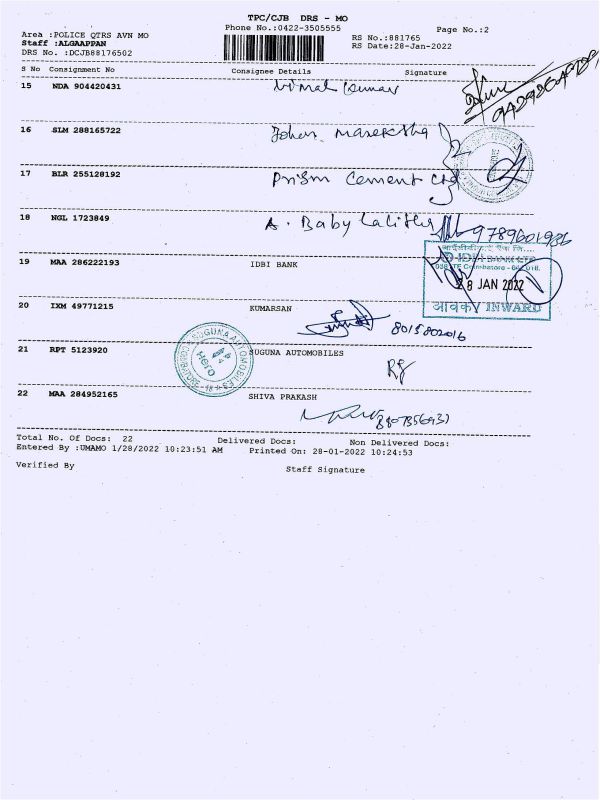 TPC/CJB DRS - MO
Phone No.:0422-3505555
Page No.:2
Area :POLICE QTRS AVN MO
RS No.:881765
Staff :ALGAAPPAN
RS Date:28-Jan-2022
DRS No. :DCJB88176502
S No Consignment No Consignee Details Signature
15 NDA 904420431
16 SLM 288165722
17 BLR 255128192 Prism Cement Ltd
18 NGL 1723849 A. Baby Lalitha
19 MAA 286222193 IDBI BANK
IDBI BANK LTD
28 JAN 2022
INWARD
20 IXM 49771215 KUMARSAN
8015802016
21 RPT 5123920 SUGUNA AUTOMOBILES
SUGUNA AUTOMOBILES
Hero
22 MAA 284952165 SHIVA PRAKASH
Total No. Of Docs: 22 Delivered Docs: Non Delivered Docs:
Entered By :UMAMO 1/28/2022 10:23:51 AM Printed On: 28-01-2022 10:24:53
Verified By Staff Signature